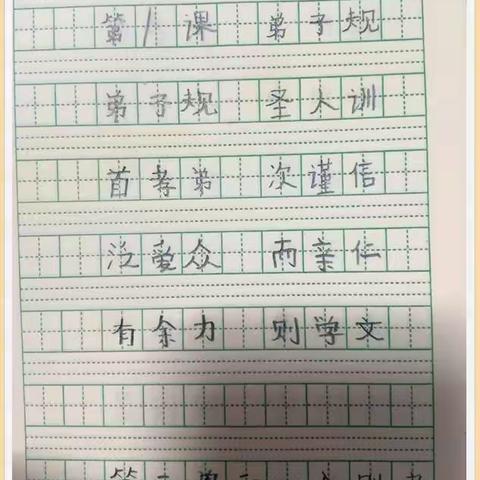 第1课 弟子规
弟子规 圣人训
首孝弟 次谨信
泛爱众 而亲仁
有余力 则学文